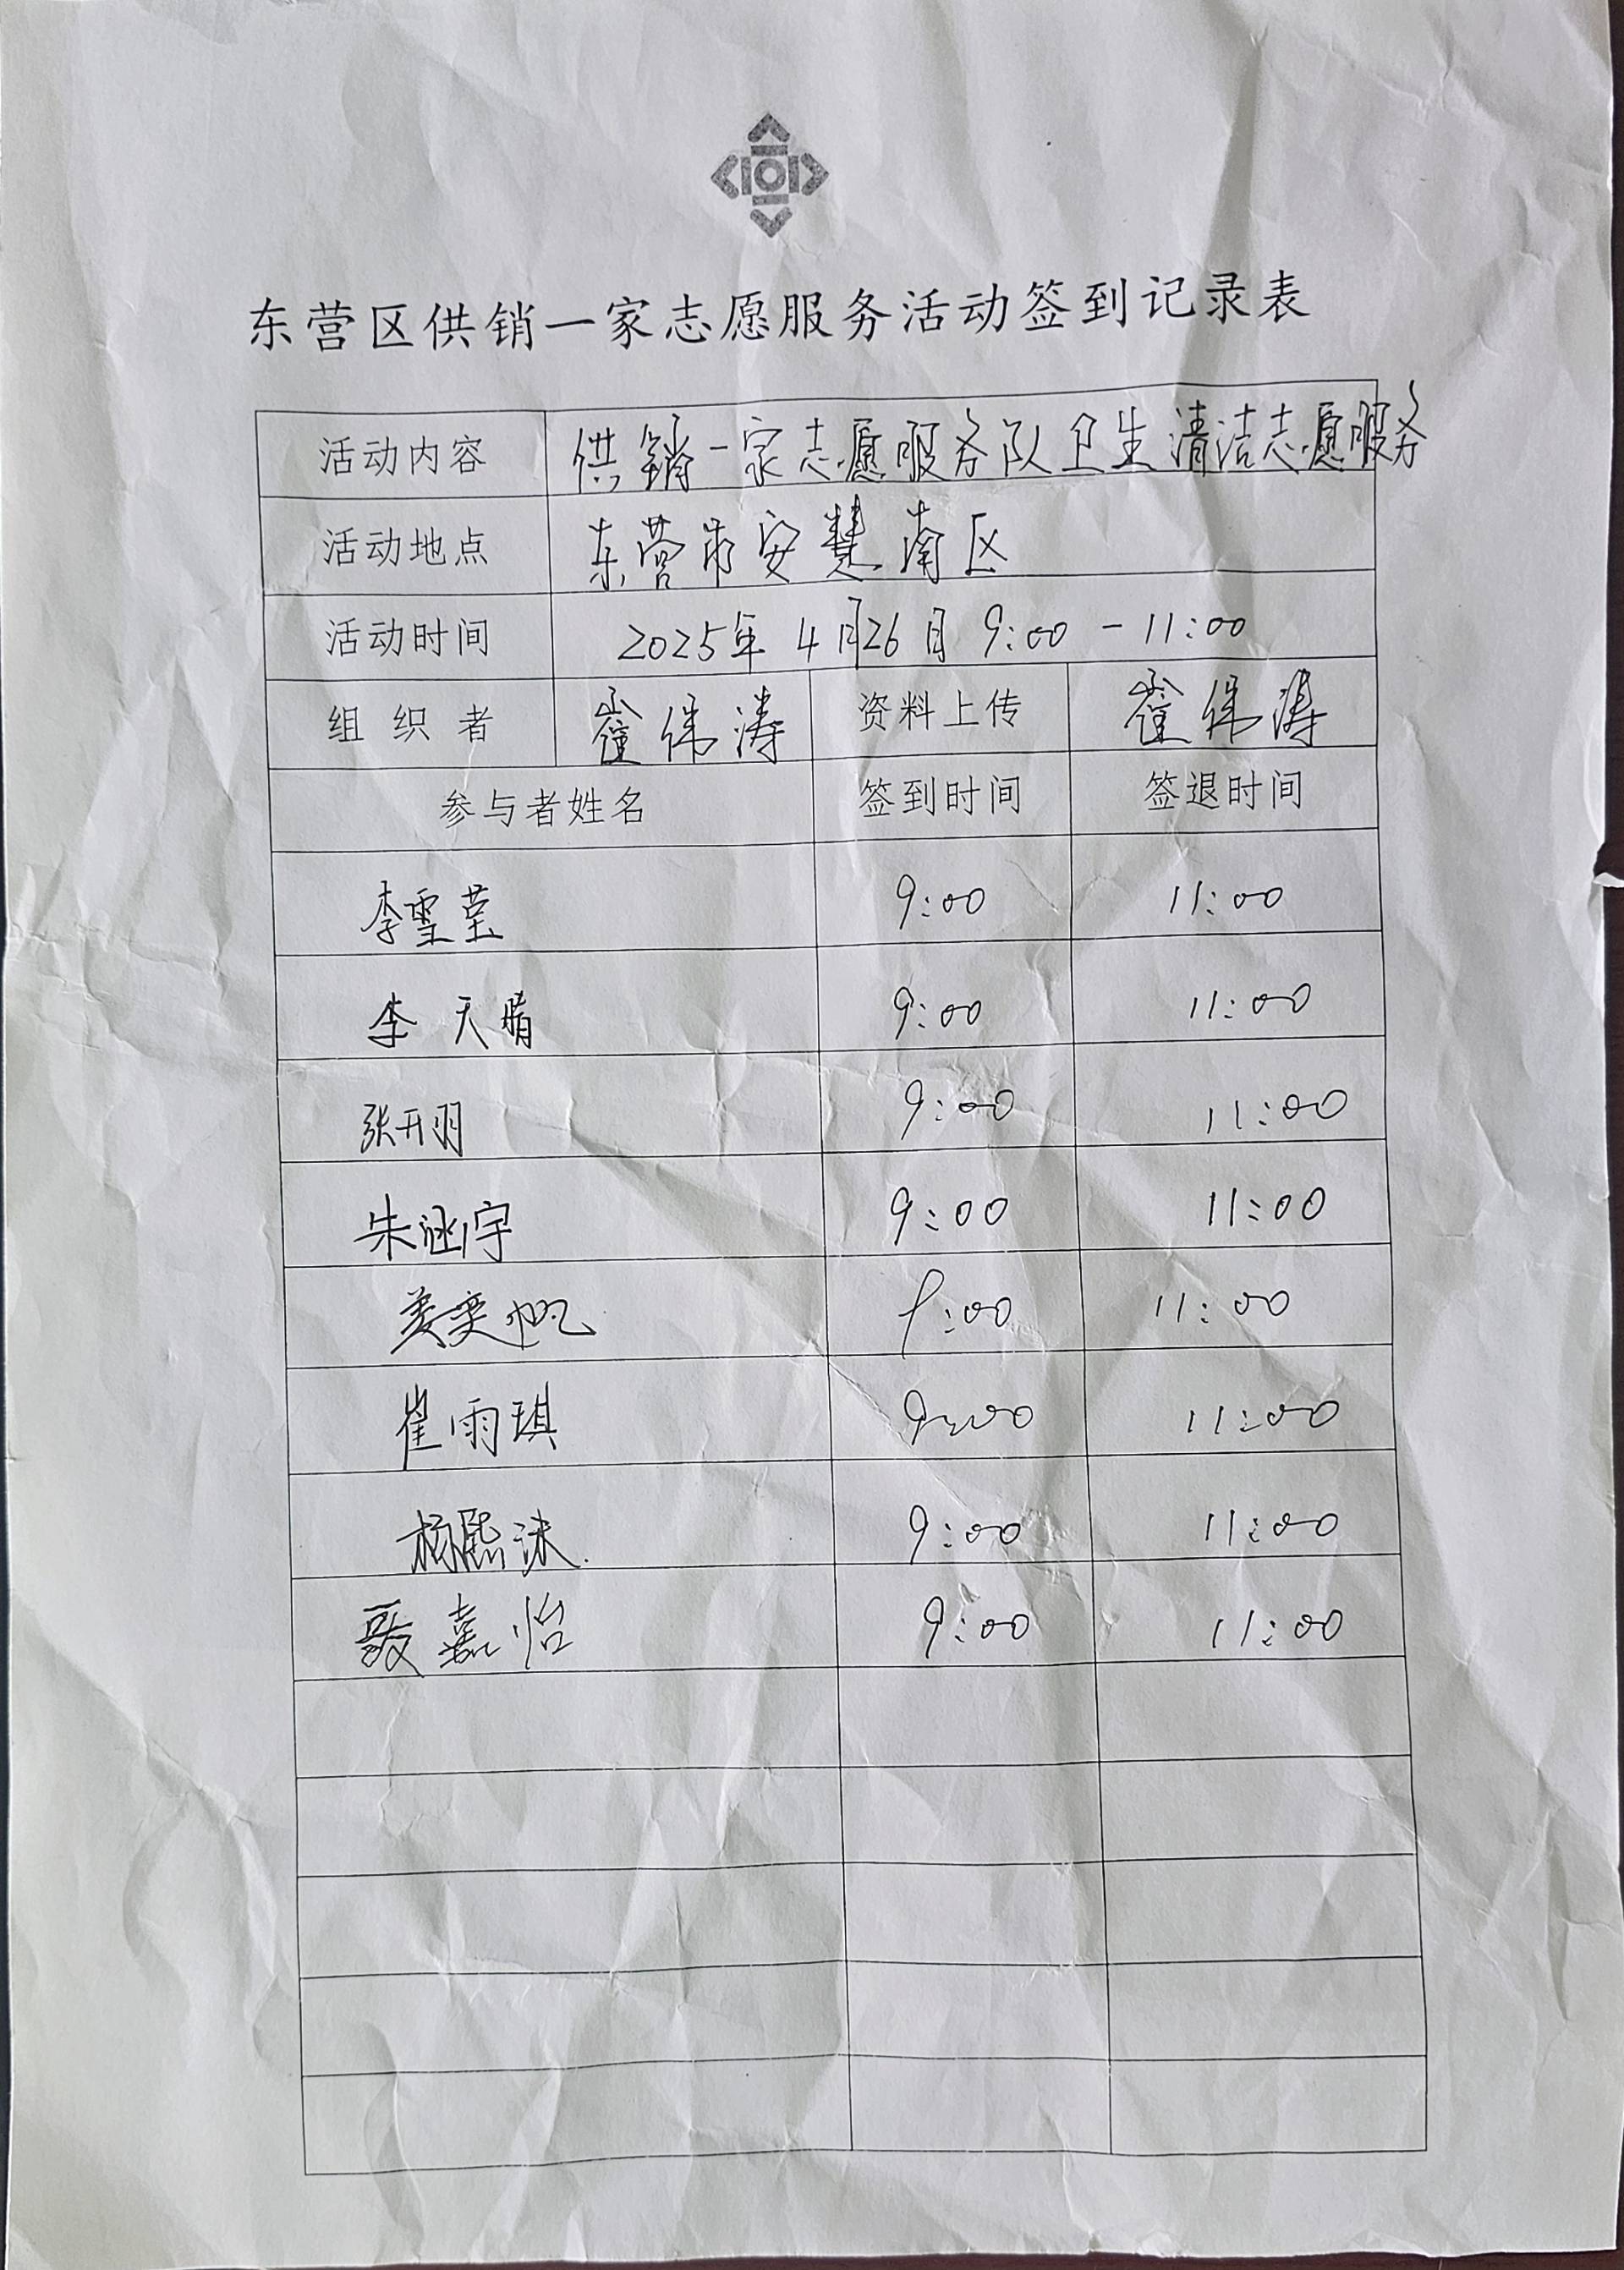 东营区供销一家志愿服务活动签到记录表
活动内容 供销一家志愿服务队卫生清洁志愿服务
活动地点 东营市安慧南区
活动时间 2025年4月26日 9:00-11:00
组织者 崔伟涛 资料上传 崔伟涛
参与者姓名 签到时间 签退时间
李雪莹 9:00 11:00
李天晴 9:00 11:00
张开羽 9:00 11:00
朱涵宇 9:00 11:00
姜奕帆 9:00 11:00
崔雨琪 9:00 11:00
杨熙沫 9:00 11:00
嘉怡 9:00 11:00